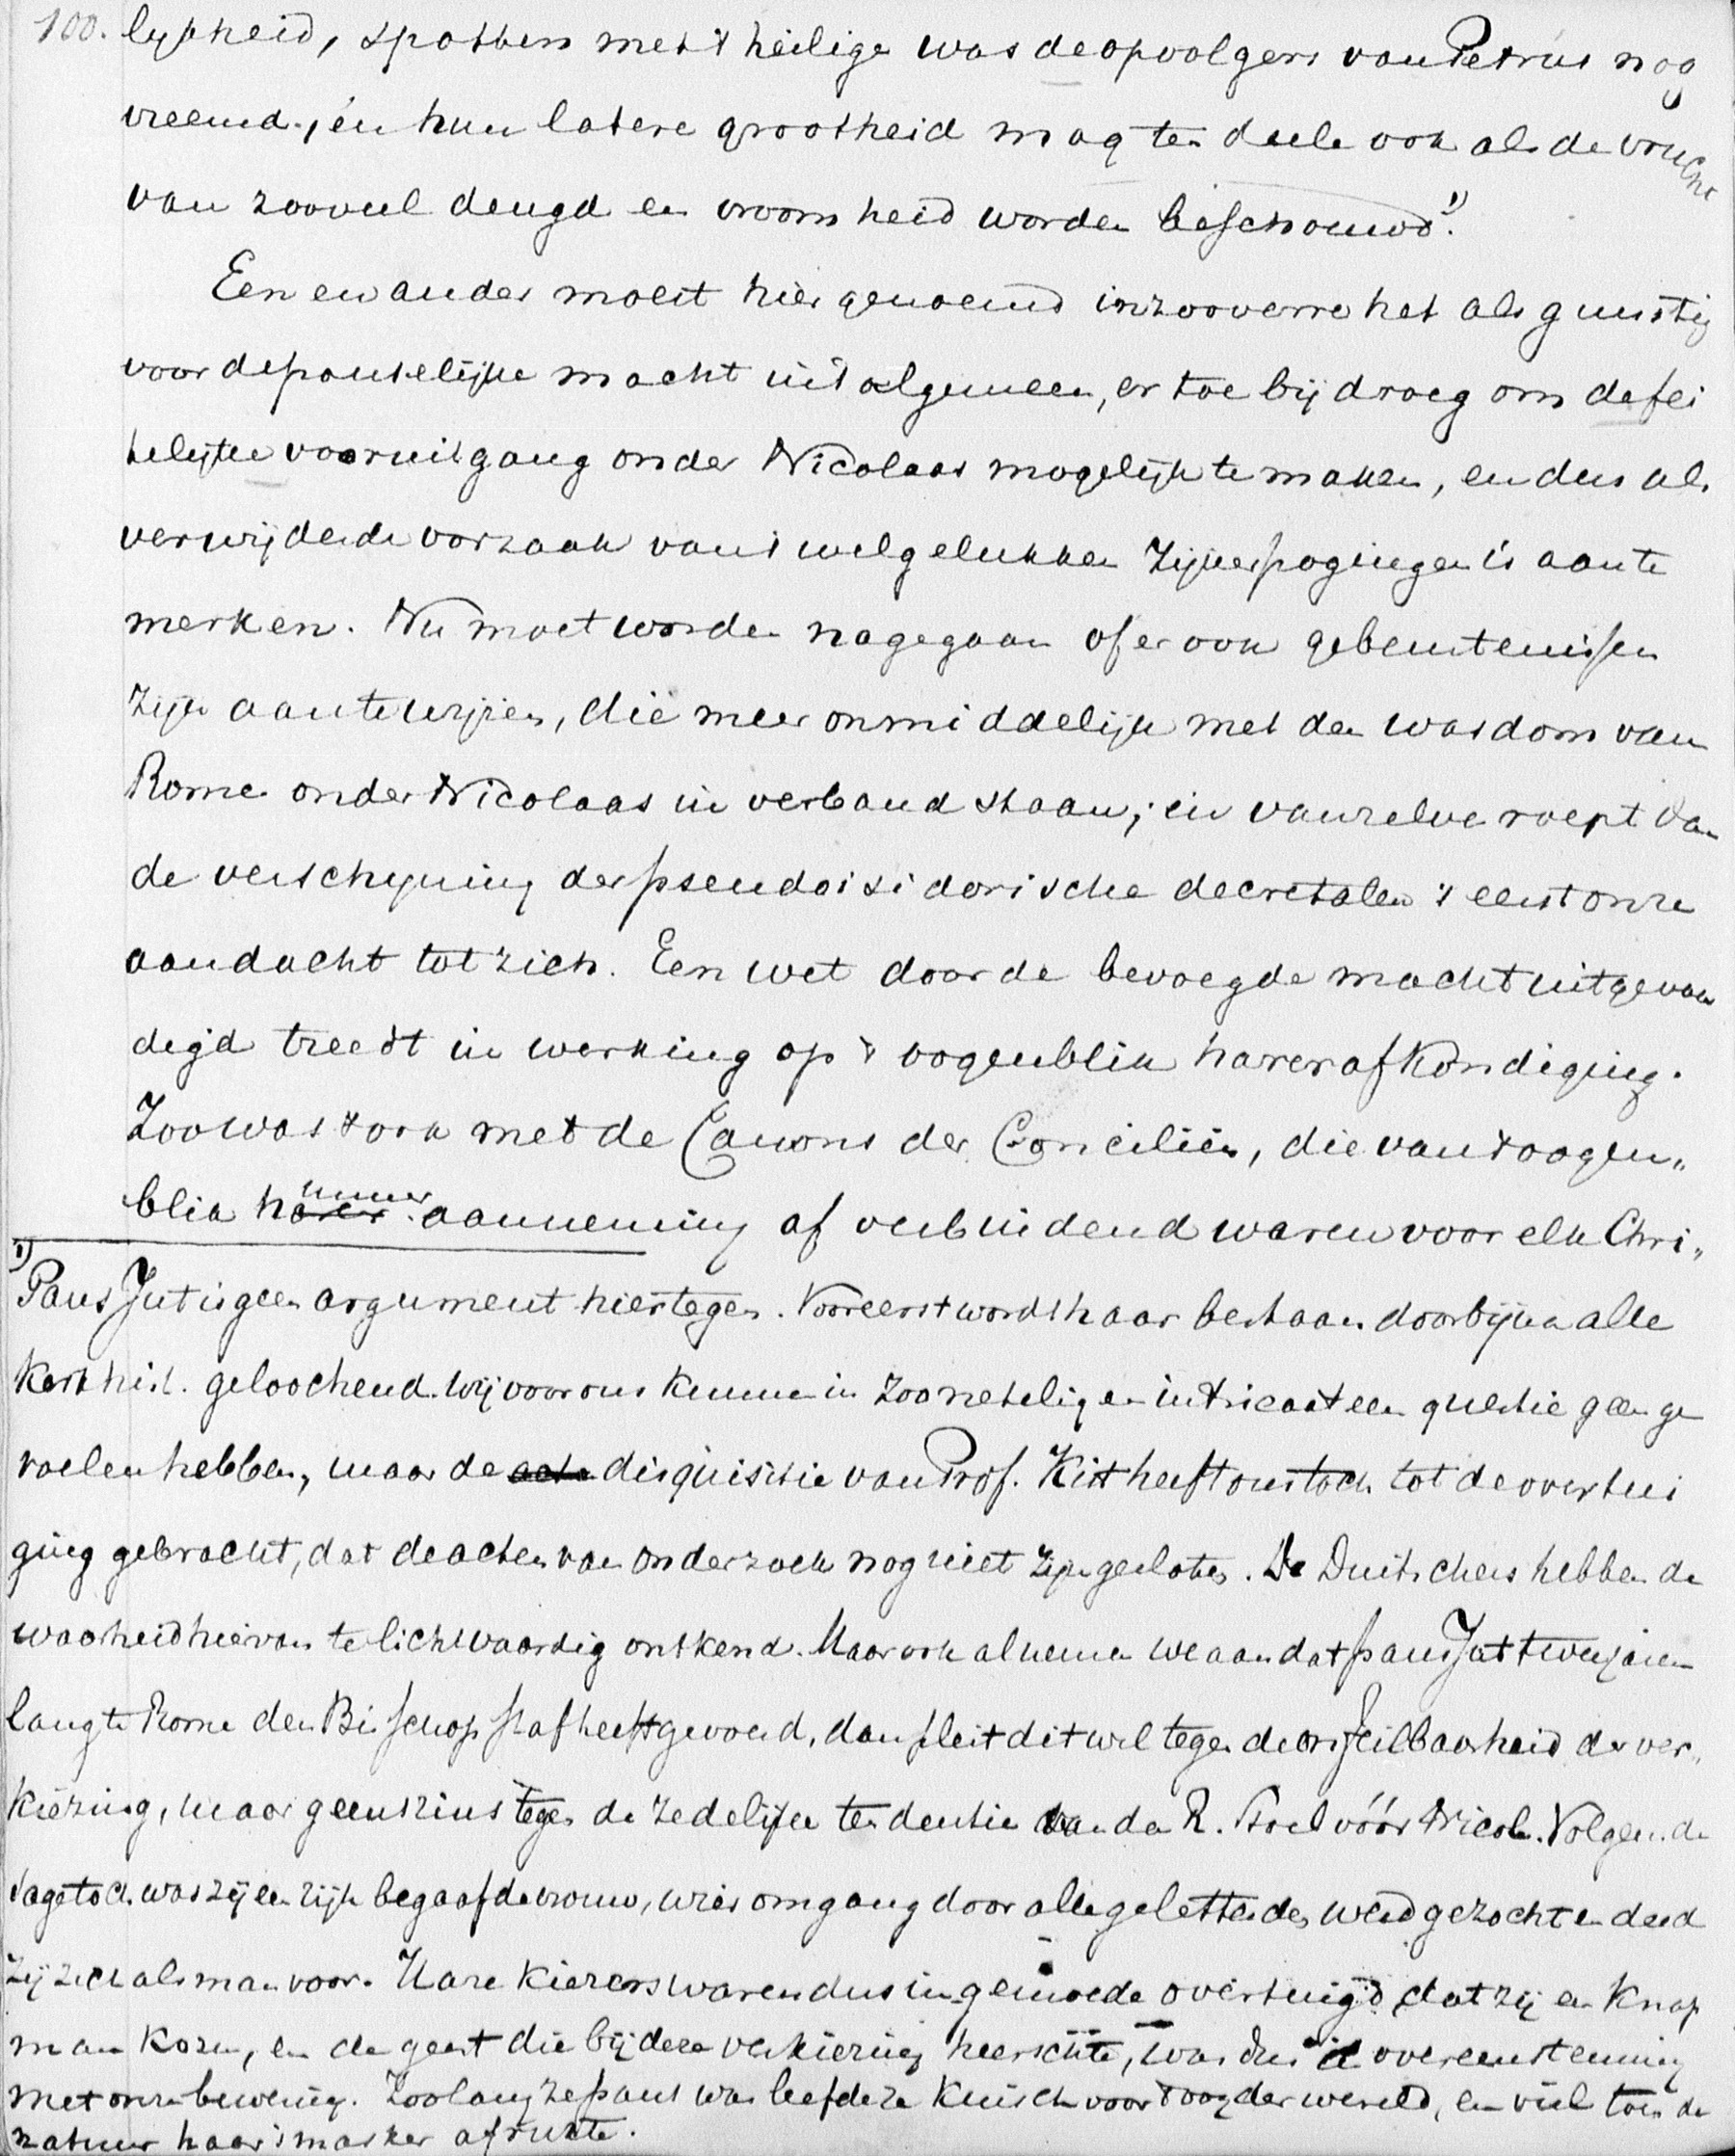 100. lijkheid, spotten met 't heilige was de opvolgers van Petrus nog
vreemd, en hun latere grootheid mag ten deele ook als de vrucht
van zooveel deugd en vroomheid worden beschouwd. 1)
Een en ander moest hier genoemd inzooverre het als gunstig
voor de pauselijke macht in 't algemeen, er toe bijdroeg om de fei
telijke vooruitgang onder Nicolaas mogelijk te maken, en dus als
verwijderde oorzaak van 't welgelukken zijner pogingen is aan te
merken. Nu moet worden nagegaan of er ook gebeurtenissen
zijn aan te wijzen, die meer onmiddelijk met den wasdom van
Rome onder Nicolaas in verband staan; en vanzelve roept dan
de verschijning der pseudoisidorische decretalen 't eerst onze
aandacht tot zich. Een wet door de bevoegde macht uitgevaar
digd treedt in werking op 't oogenblik harer afkondiging.
Zoo was 't ook met de Canons der Conciliën, die van 't oogen„
blik harer hunner aanneming af verbindend waren voor elk Chri„
1) Paus Jut is geen argument hiertegen. Vooreerst wordt haar bestaan door bijna alle
Kerkhist. geloochend. Wij voor ons kunnen in zoo netelig en intricaat een questie geen ge
voelen hebben, maar de acte disquisitie van Prof. Kist heeft ons toch tot de overtui
ging gebracht, dat de acten van onderzoek nog niet zijn gesloten. De Duitschers hebben de
waarheid hiervan te lichtvaardig ontkend. Maar ook al nemen we aan dat paus Jut twee jaren
lang te Rome den Bisschopsstaf heeft gevoerd, dan pleit dit wel tegen de onfeilbaarheid der ver„
kiezing, maar geenszins tegen de zedelijke tendentie van de R. Stoel vóór Nicol. Volgens de
sage toch was zij een rijk begaafde vrouw, wier omgang door alle geletterden werd gezocht en deed
zij zich als man voor. Hare kiezers waren dus in gemoede overtuigd, dat zij een knap
man kozen, en de geest die bij deze verkiezing heerschte, was dus in overeenstemming
met onze bewering. Zoolang ze paus was leefde ze kuisch voor 't oog der wereld, en viel toen de
natuur haar 't masker afrukte.